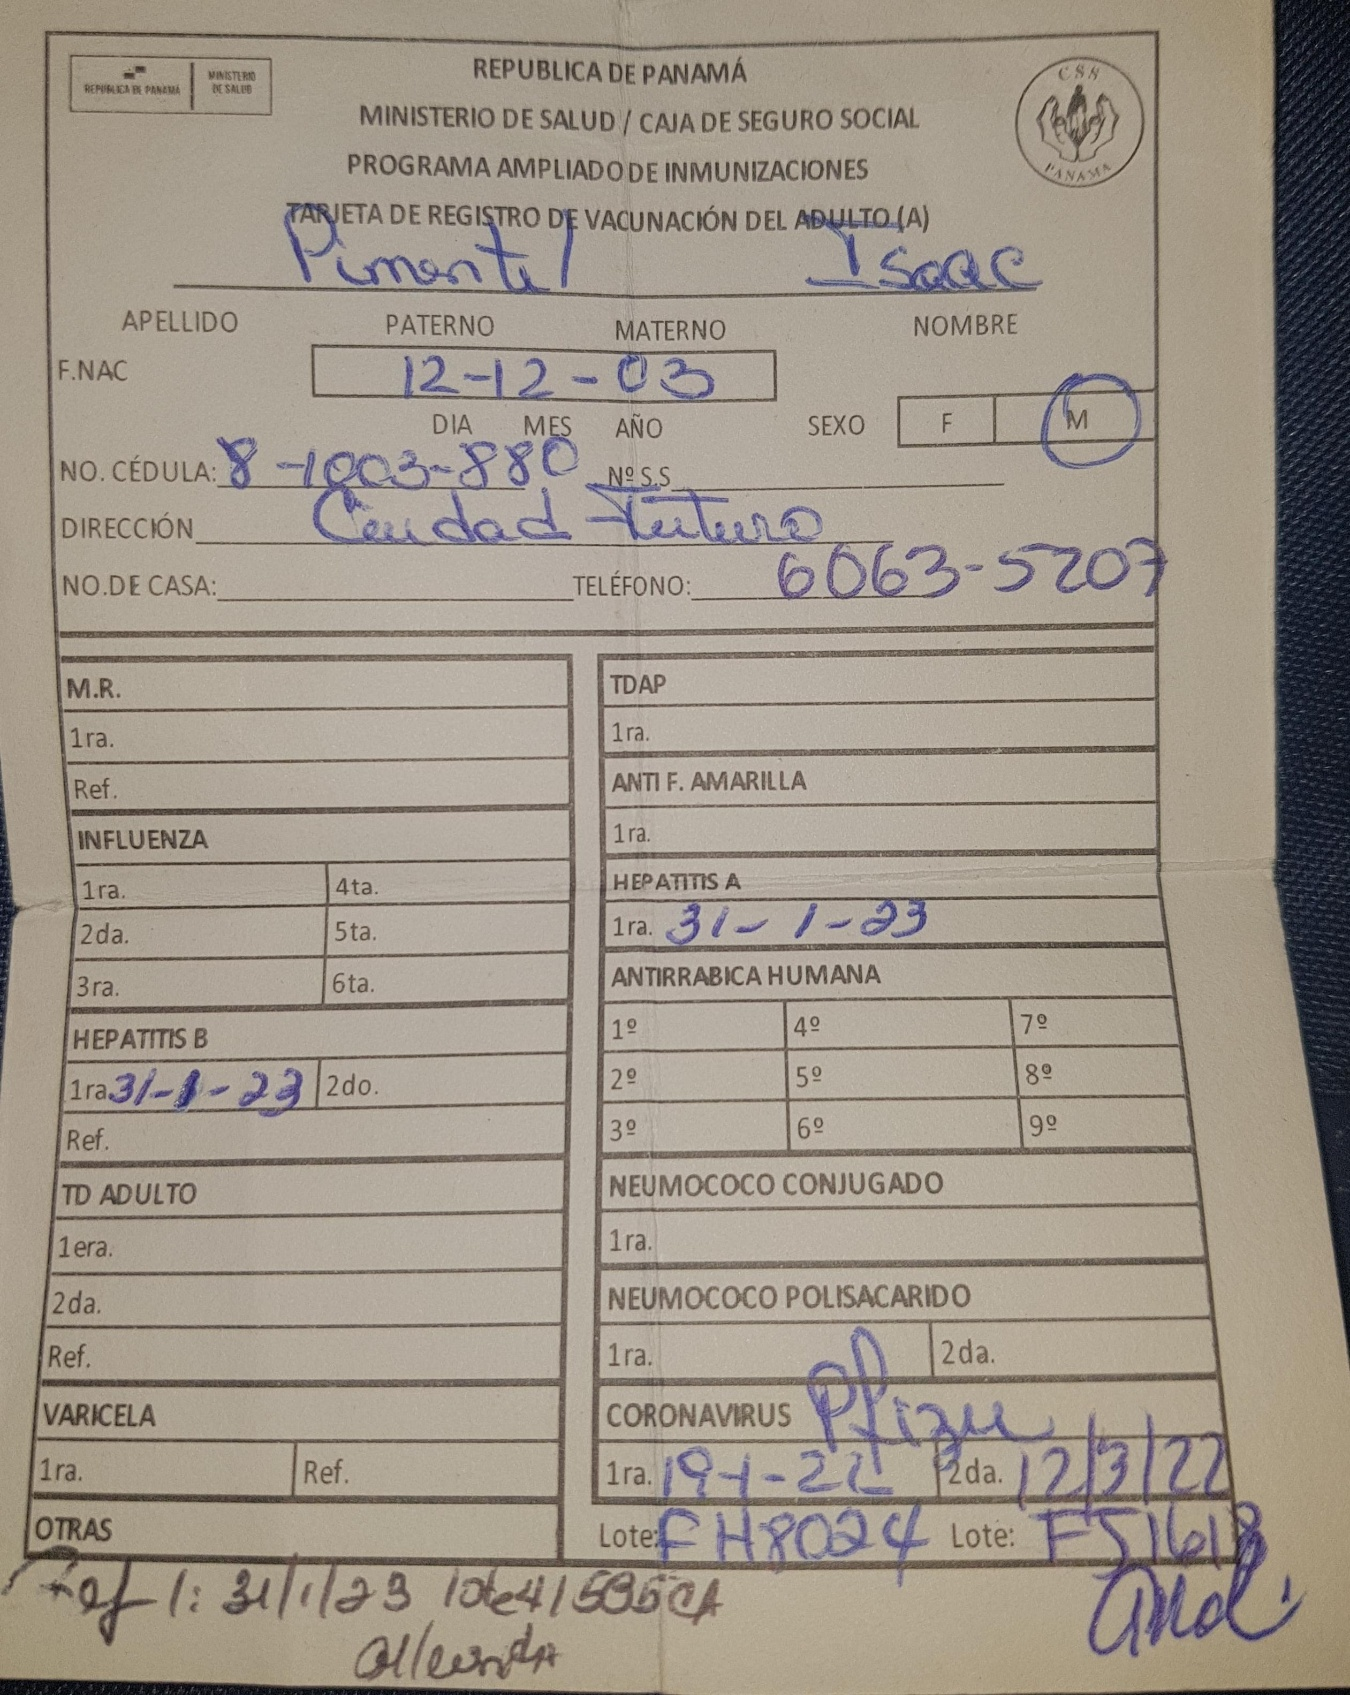 REPÚBLICA DE PANAMÁ
MINISTERIO DE SALUD
CSS
PANAMA
REPUBLICA DE PANAMÁ
MINISTERIO DE SALUD / CAJA DE SEGURO SOCIAL
PROGRAMA AMPLIADO DE INMUNIZACIONES
TARJETA DE REGISTRO DE VACUNACIÓN DEL ADULTO (A)
Pimentel Isaac
APELLIDO PATERNO MATERNO NOMBRE
F.NAC 12-12-03
DIA MES AÑO SEXO F M
NO. CÉDULA: 8-1003-880 Nº S.S
DIRECCIÓN Ciudad Futuro
NO.DE CASA: TELÉFONO: 6063-5207
M.R.
1ra.
Ref.
INFLUENZA
1ra. 4ta.
2da. 5ta.
3ra. 6ta.
HEPATITIS B
1ra 31-1-23 2do.
Ref.
TD ADULTO
1era.
2da.
Ref.
VARICELA
1ra. Ref.
OTRAS
TDAP
1ra.
ANTI F. AMARILLA
1ra.
HEPATITIS A
1ra. 31-1-23
ANTIRRABICA HUMANA
1º 4º 7º
2º 5º 8º
3º 6º 9º
NEUMOCOCO CONJUGADO
1ra.
NEUMOCOCO POLISACARIDO
1ra. 2da.
CORONAVIRUS Pfizer
1ra. 19-1-22 2da. 12/3/22
Lote: FH8024 Lote:
Ref 1: 31/1/23